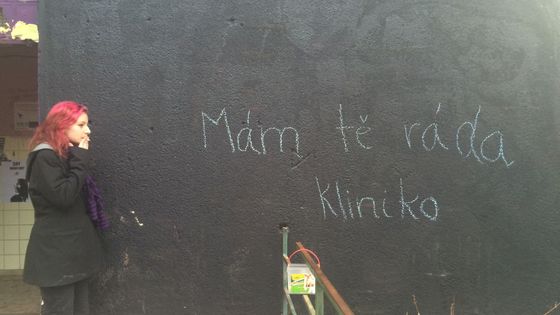 Mám tě ráda
Kliniko